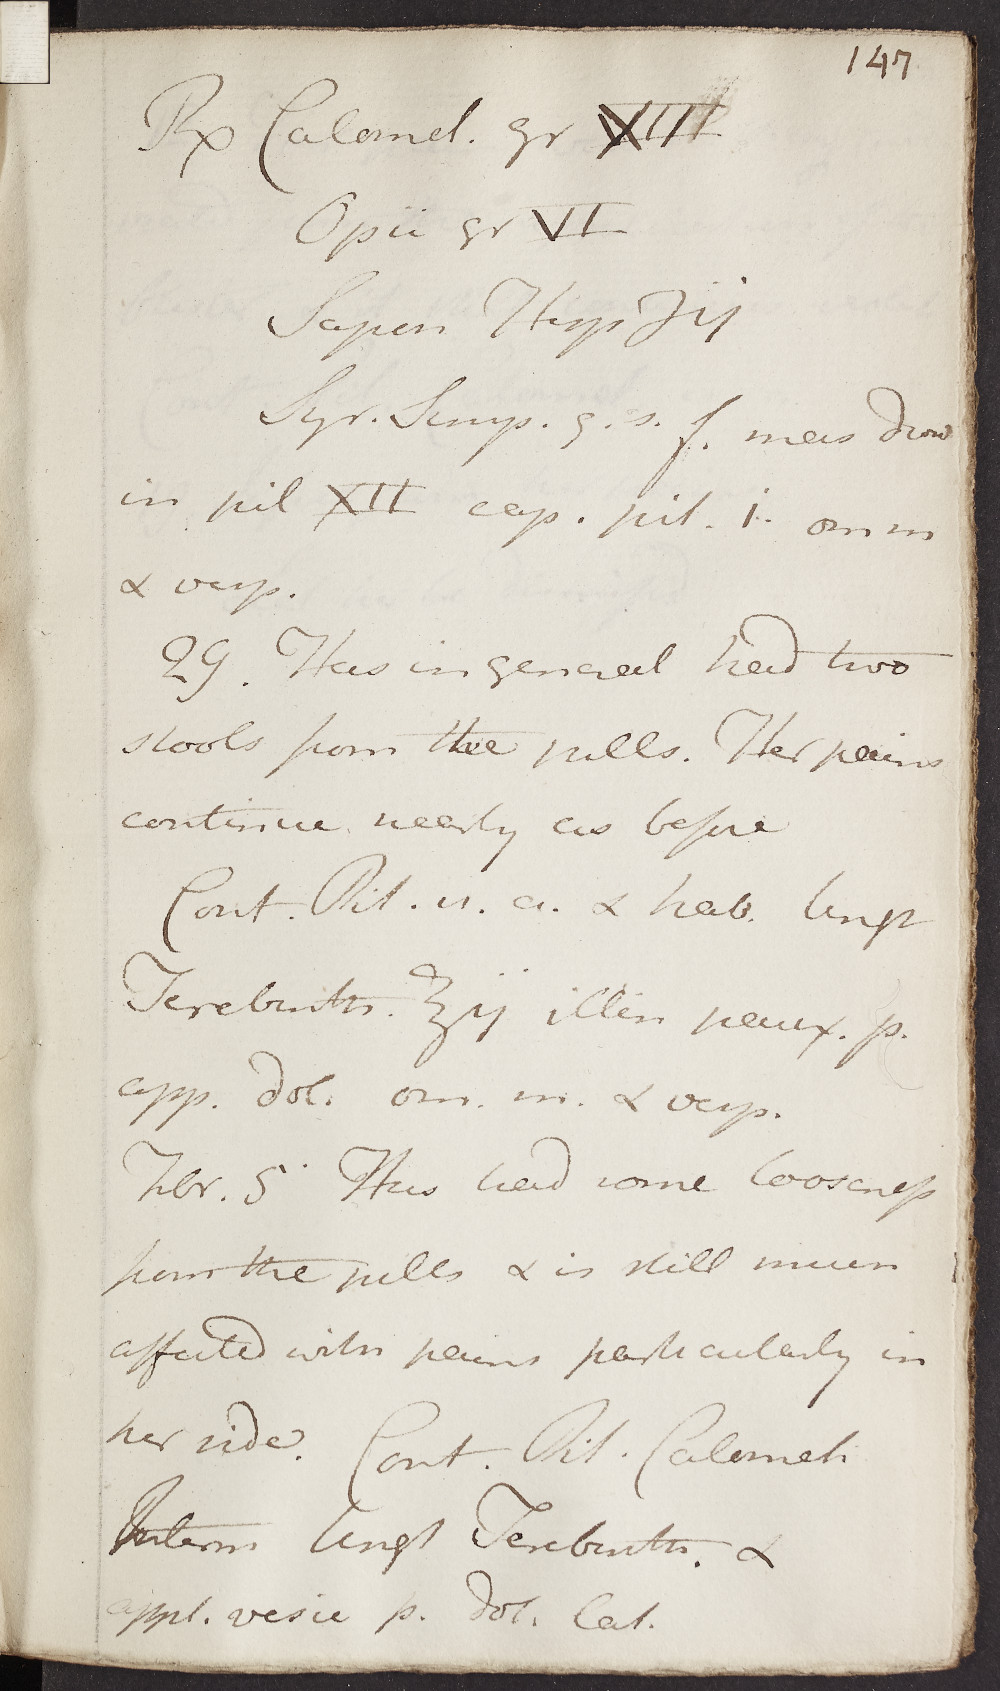 147
Rx Calomel. gr XIII
Opii gr VI
Sapon Hisp ʒij
Syr. Simp. q. s. f. mas divid
in pil XII cap. pil. i. om m
& vesp.
29. Has in general had two
stools from the pills. Her pains
continue nearly as before
Cont. Pil. u. a. & hab. Ungt
Terebinth. ℥ij illin paux. p.
app. dol. om. m. & vesp.
Xbr. 5 Has had some looseness
from the pills & is still much
affected with pains particularly in
her side. Cont. Pil. Calomel
Interm Ungt Terebinth. &
appl. vesic p. dol. Lat.